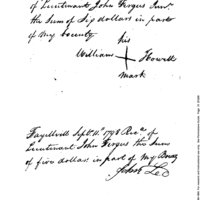 of Lieutenant John Fergus Junr.
the Sum of Six dollars in part
of My bounty
his
William + Howell
mark
Fayettvill Sept. 4th 1798 Recd of
Lieutenant John Fergus the Sum
of five dollars in part of My Bouty
Jacob Leo